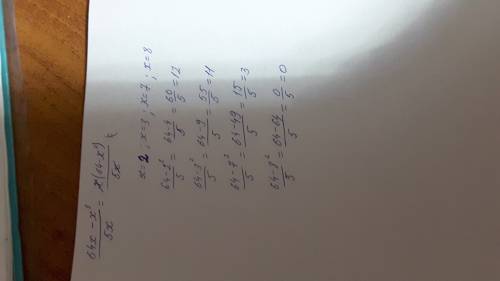 64x - x³/5x = x(64-x²)/5x ;
x=2 ; x=3 ; x=7 ; x=8
64-2²/5 = 64-4/5 = 60/5 = 12
64-3²/5 = 64-9/5 = 55/5 = 11
64-7²/5 = 64-49/5 = 15/5 = 3
64-8²/5 = 64-64/5 = 0/5 = 0